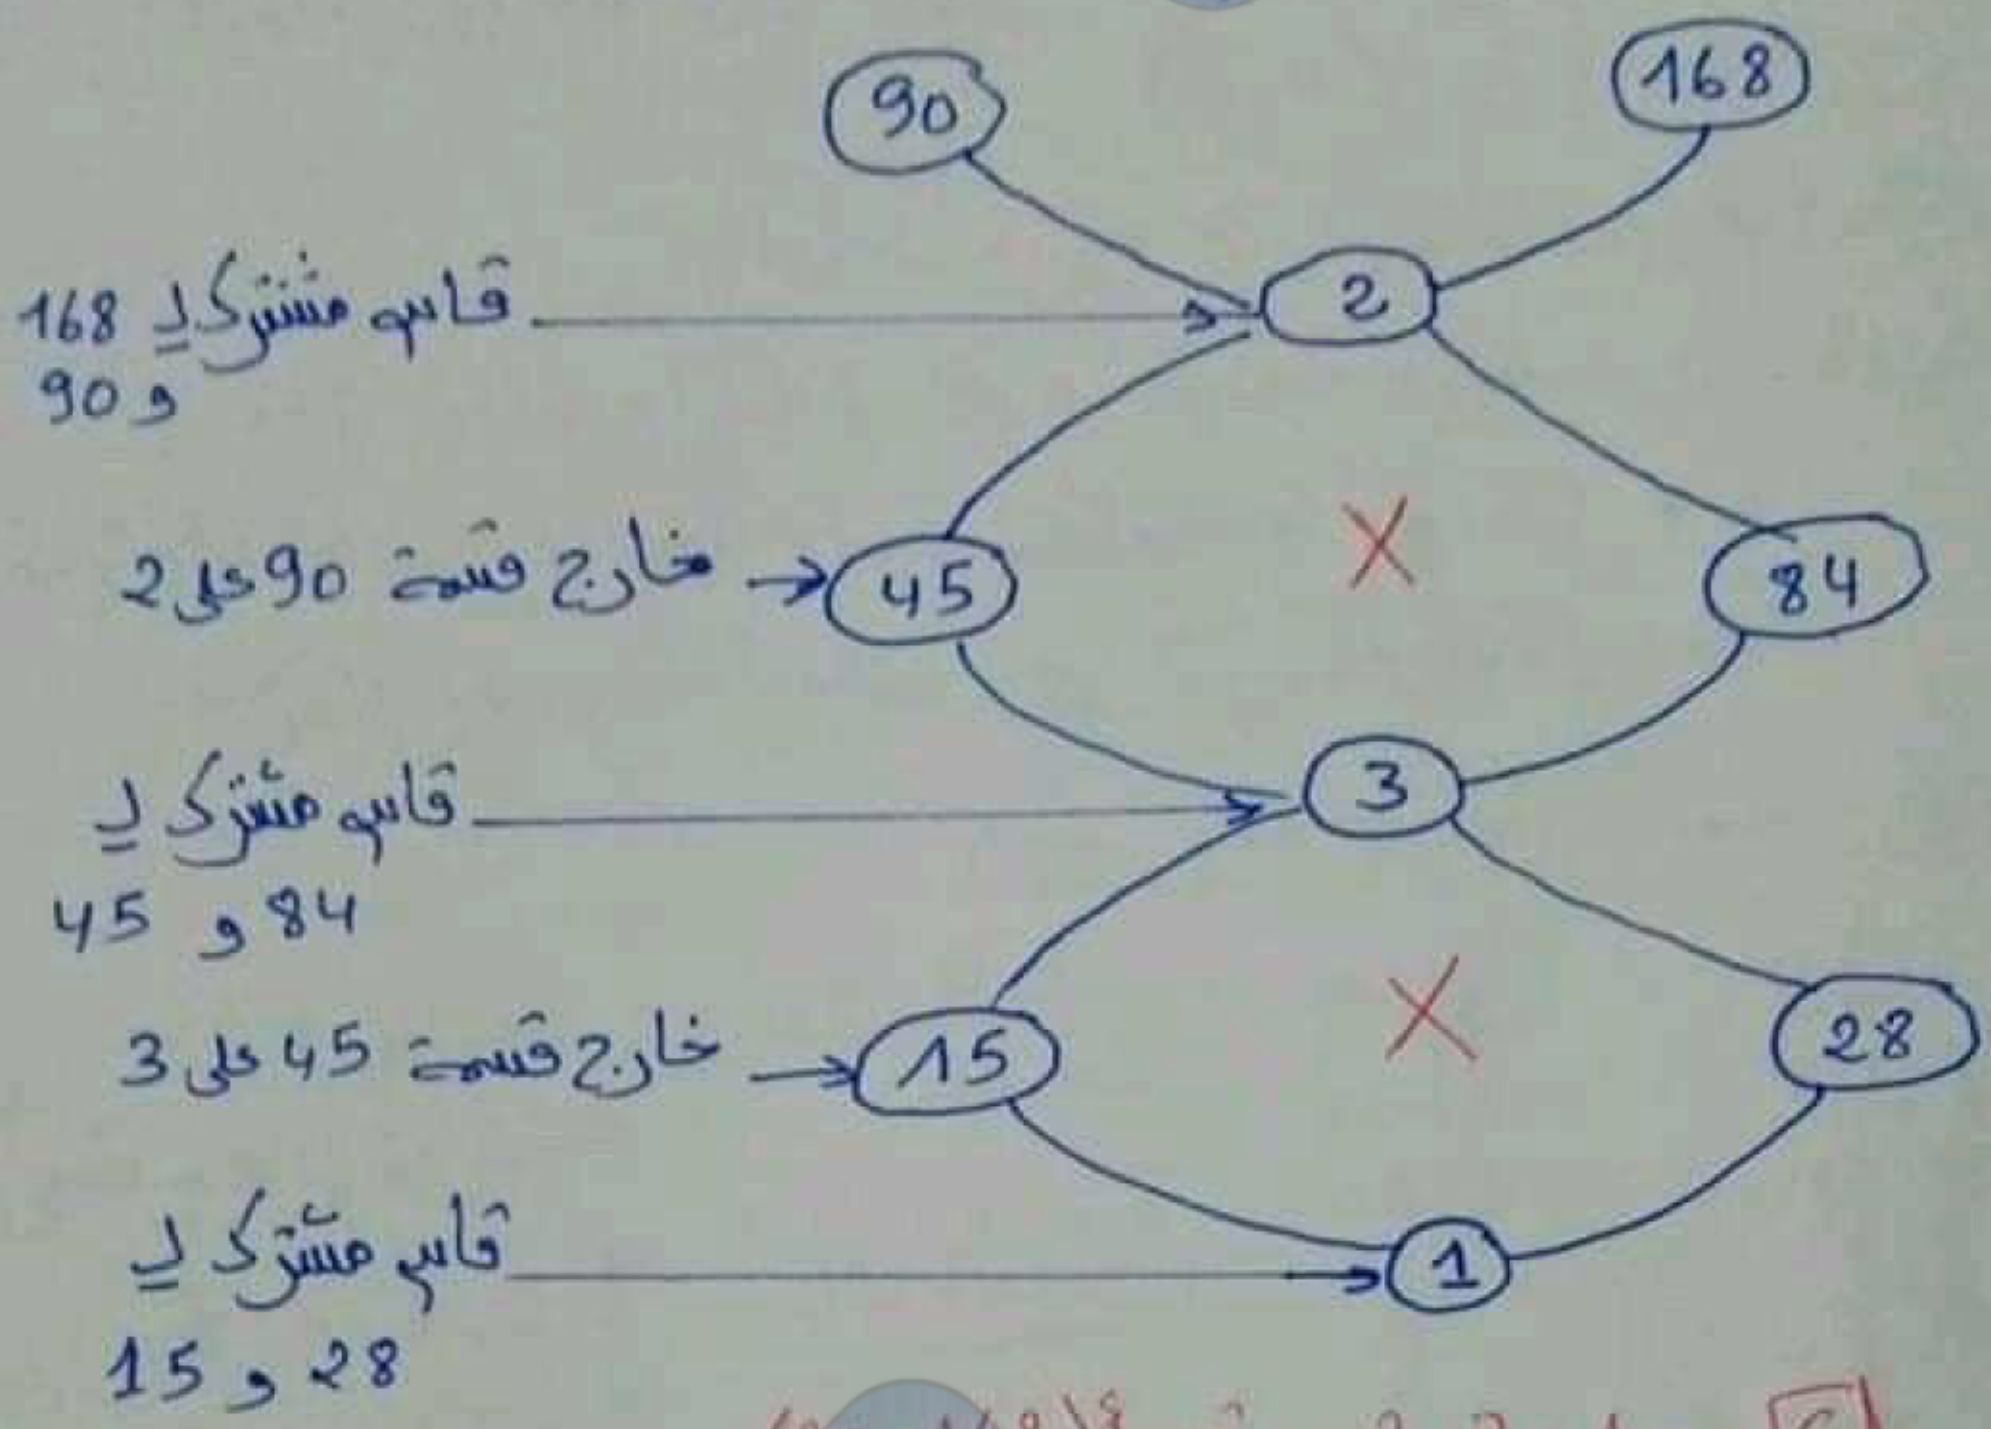 90
168
قاسم مشترك لـ 168
و 90
2
خارج قسمة 90 على 2
45
84
قاسم مشترك لـ
84 و 45
3
خارج قسمة 45 على 3
15
28
X
X
قاسم مشترك لـ
28 و 15
1